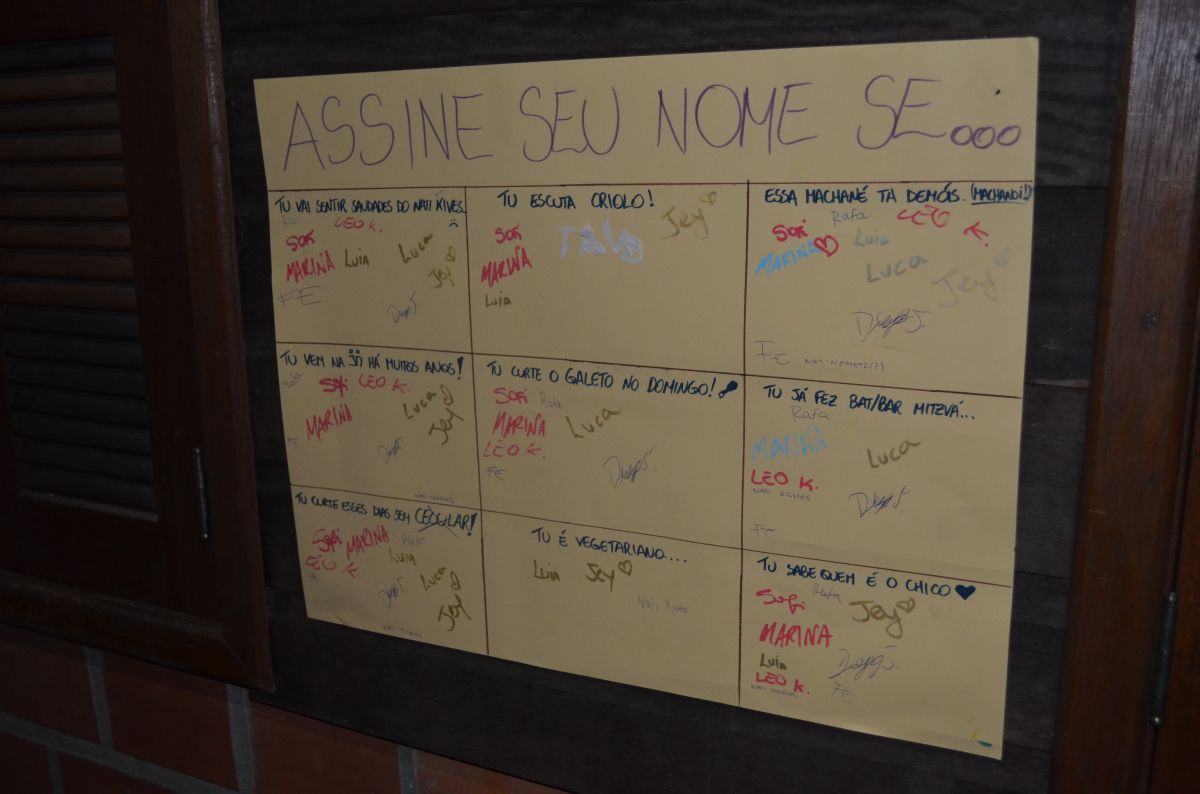 ASSINE SEU NOME SE...
TU VAI SENTIR SAUDADES DO NATI KIVES
LEO K.
SOFI
MARINA LUIA LUCA
Jey
FE
Diego S.
TU ESCUTA CRIOLO!
SOFI Jey
MARINA
Luia
ESSA MACHANÉ TÁ DEMÓIS. (MACHANOI!)
Rafa LEO K.
SOFI
MARINA Luia
LUCA
Jey
Diego S.
FE
TU VEM NA HÁ MUITOS ANOS!
Rafa SOFI LEO K.
MARINA LUCA
Jey
FE
TU CURTE O GALETO NO DOMINGO!
SOFI Rafa
MARINA LUCA
LEO K.
FE Diego S.
TU JÁ FEZ BAT/BAR MITZVÁ...
Rafa
MARINA LUCA
LEO K.
Diego S.
FE
TU CURTE ESSES DIAS SEM CELULAR!
SOFI MARINA Rafa
LEO K. Luia
FE LUCA
Diego S. Jey
TU É VEGETARIANO....
Luia Jey
Nati Kives
TU SABE QUEM É O CHICO
Sofi Rafa Jey
MARINA
Luia Diego S.
LEO K. FE